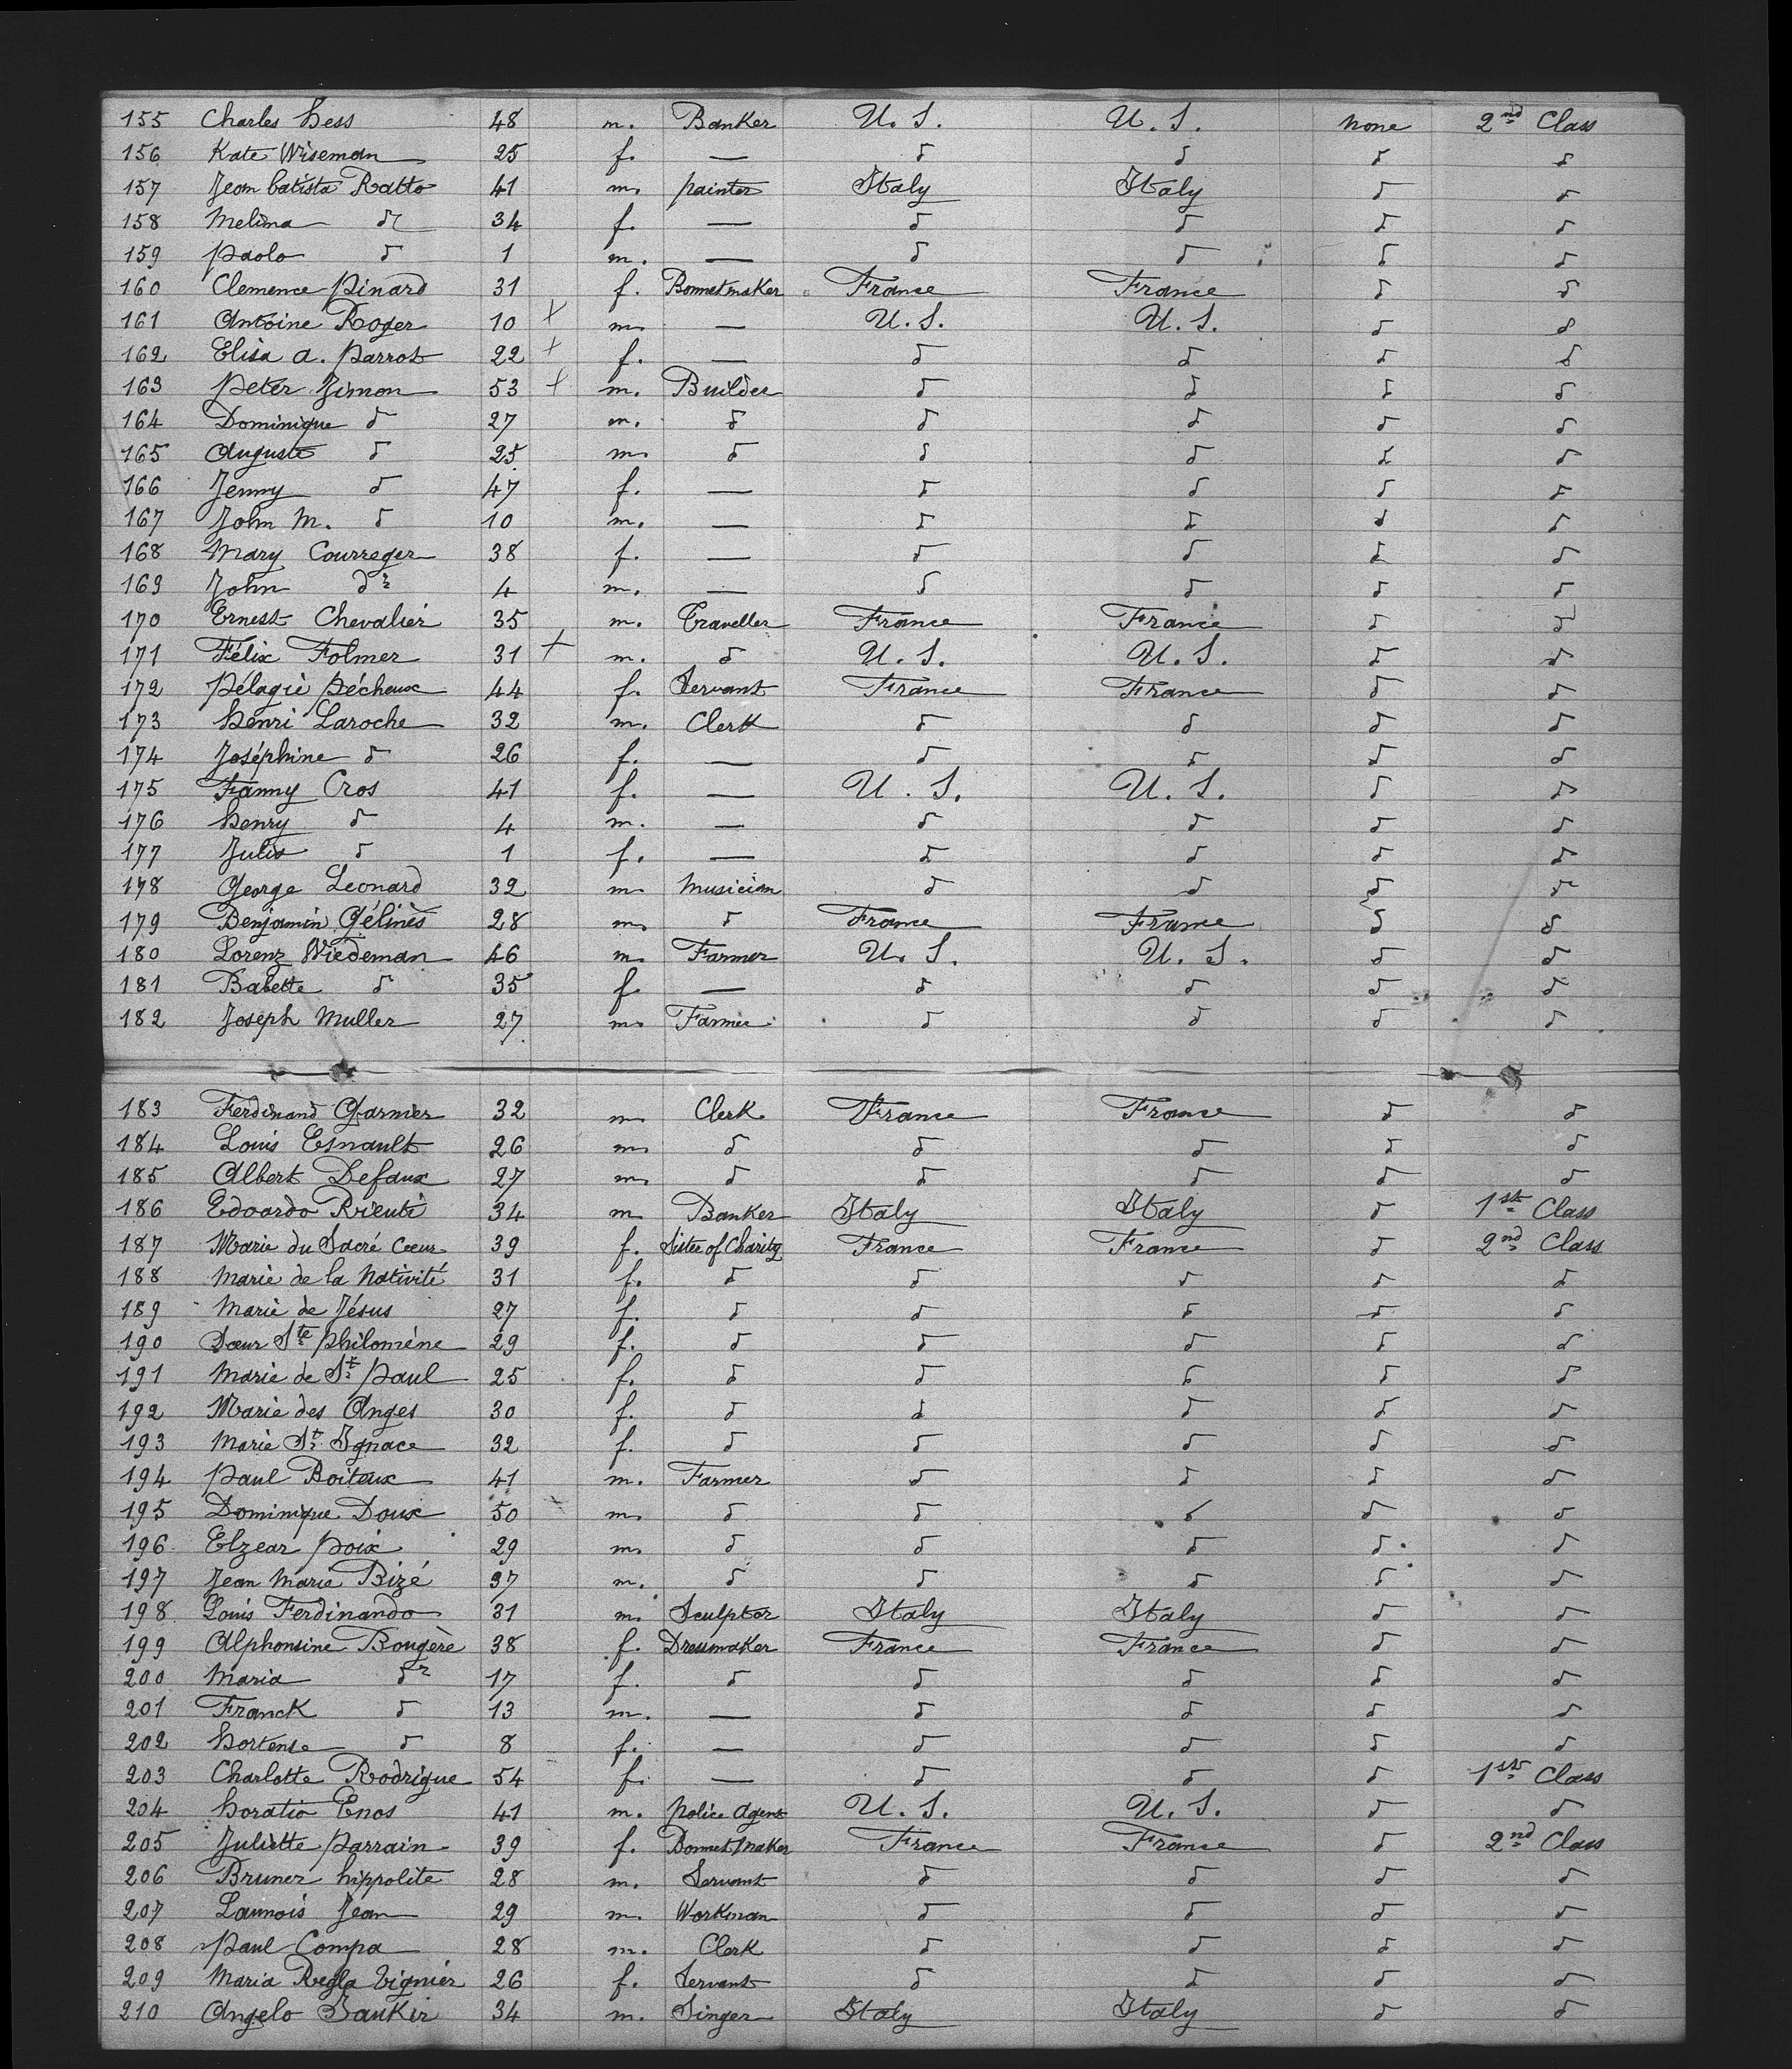 155 Charles Hess 48 m. Banker U. S. U. S. none 2nd Class
156 Kate Wiseman 25 f. — d d d d
157 Jean batista Ratto 41 m. painter Italy Italy d d
158 Melina d 34 f. — d d d d
159 Paolo d 1 m. — d d d d
160 Clemence Pinard 31 f. Bonnetmaker France France d d
161 Antoine Roger 10 + m. — U. S. U. S. d d
162 Elisa A. Parrot 22 + f. — d d d d
163 Peter Simon 53 + m. Builder d d d d
164 Dominique d 27 m. d d d d d
165 Auguste d 25 m. d d d d d
166 Jenny d 47 f. — d d d d
167 John M. d 10 m. — d d d d
168 Mary Courreger 38 f. — d d d d
169 John do 4 m. — d d d d
170 Ernest Chevalier 35 m. Traveller France France d d
171 Félix Folmer 31 + m. d U. S. U. S. d d
172 Pélagie Pécheux 44 f. Servant France France d d
173 Henri Laroche 32 m. Clerk d d d d
174 Joséphine d 26 f. — d d d d
175 Fanny Cros 41 f. — U. S. U. S. d d
176 Henry d 4 m. — d d d d
177 Julia d 1 f. — d d d d
178 George Leonard 32 m. Musician d d d d
179 Benjamin Gélines 28 m. d France France d d
180 Lorenz Wiedeman 46 m. Farmer U. S. U. S. d d
181 Babette d 35 f. — d d d d
182 Joseph Muller 27 m. Farmer d d d d
183 Ferdinand Garnier 32 m. Clerk France France d d
184 Louis Esnault 26 m. d d d d d
185 Albert Defaux 27 m. d d d d d
186 Edoardo Rieuti 34 m. Banker Italy Italy d 1st Class
187 Marie du Sacré Coeur 39 f. Sister of Charity France France d 2nd Class
188 Marie de la Nativité 31 f. d d d d d
189 Marie de Jésus 27 f. d d d d d
190 Soeur Ste Philomène 29 f. d d d d d
191 Marie de St Paul 25 f. d d d d d
192 Marie des Anges 30 f. d d d d d
193 Marie St Ignace 32 f. d d d d d
194 Paul Boiteux 41 m. Farmer d d d d
195 Dominique Doux 50 m. d d d d d
196 Elzear Poix 29 m. d d d d d
197 Jean Marie Bizé 37 m. d d d d d
198 Louis Ferdinando 31 m. Sculptor Italy Italy d d
199 Alphonsine Bougère 38 f. Dressmaker France France d d
200 Maria do 17 f. d d d d d
201 Franck d 13 m. — d d d d
202 Hortense d 8 f. — d d d d
203 Charlotte Rodrigue 54 f. — d d d 1st Class
204 Horatio Enos 41 m. Police Agent U. S. U. S. d d
205 Juliette Parrain 39 f. Bonnet Maker France France d 2nd Class
206 Bruner hippolite 28 m. Servant d d d d
207 Launois Jean 29 m. Workman d d d d
208 Paul Compa 28 m. Clerk d d d d
209 Maria Regla Vignier 26 f. Servant d d d d
210 Angelo 34 m. Singer Italy Italy d d